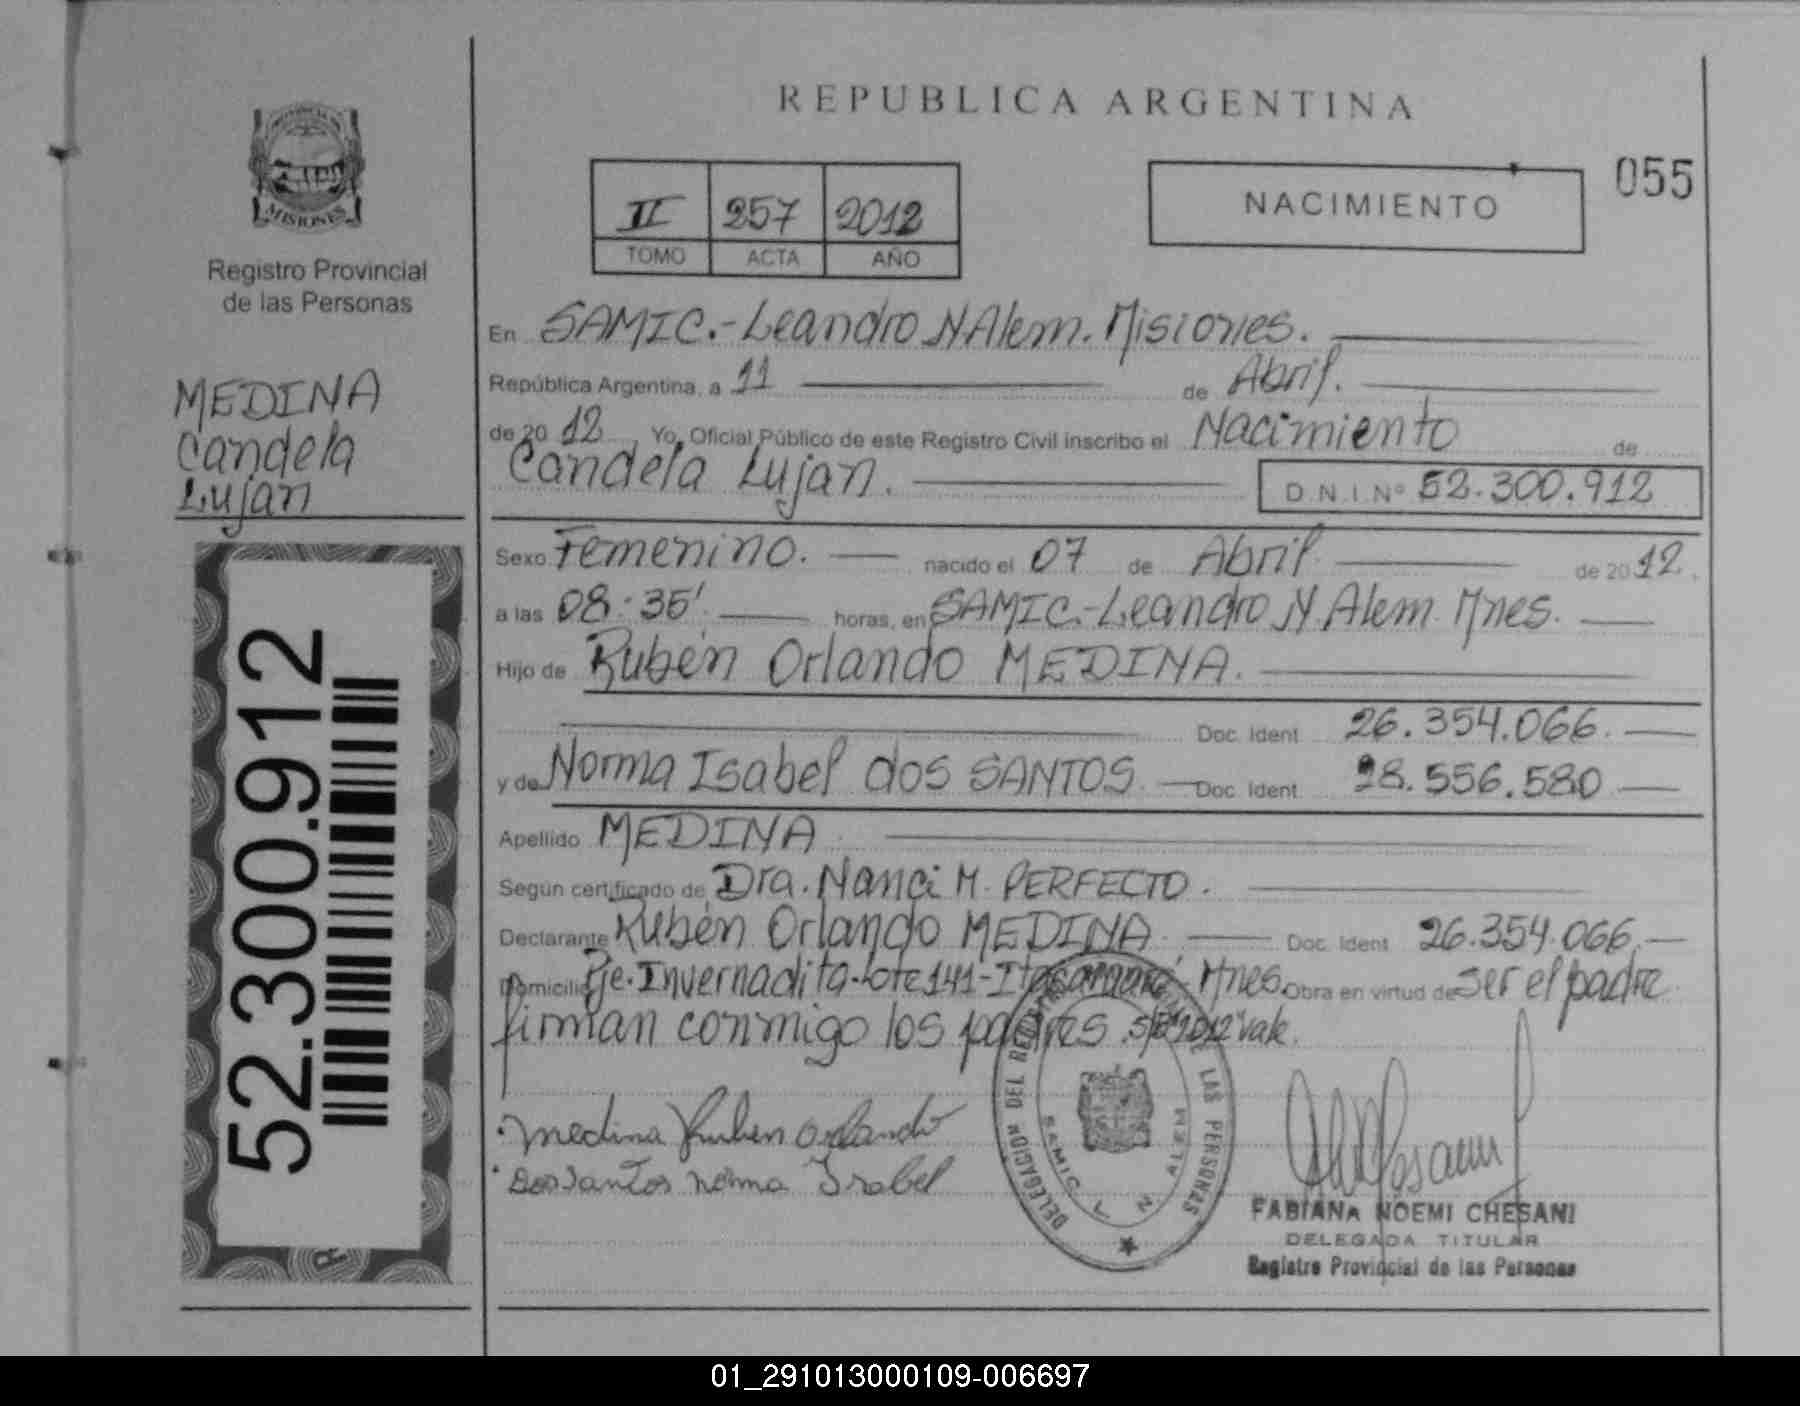 REPUBLICA ARGENTINA
MISIONES
Registro Provincial
de las Personas
II 257 2012
TOMO ACTA AÑO
NACIMIENTO
055
MEDINA
Candela
Lujan
En SAMIC.-Leandro N Alem. Misiones.
República Argentina, a 11 de Abril.
de 20 12, Yo, Oficial Público de este Registro Civil inscribo el Nacimiento de
Candela Lujan. D.N.I.Nº 52.300.912
Sexo Femenino. nacido el 07 de Abril de 2012.
a las 08:35' horas, en SAMIC.-Leandro N. Alem. Mnes.
Hijo de Rubén Orlando MEDINA.
Doc. Ident. 26.354.066.
y de Norma Isabel dos SANTOS. Doc. Ident. 28.556.580
Apellido MEDINA
Según certificado de Dra. Nanci M. PERFECTO.
Declarante Rubén Orlando MEDINA. Doc. Ident. 26.354.066.
Domicilio Pje. Invernadita-Lote 141-Itacaruaré, Mnes. Obra en virtud de ser el padre
firman conmigo los padres. "2012" vale.
Medina Ruben Orlando
Dos Santos Norma Isabel
DELEGACION DEL LAS PERSONAS
SAMIC L. N. ALEM
FABIANA NOEMI CHESANI
DELEGADA TITULAR
Registro Provincial de las Personas
52.300.912
01_291013000109-006697